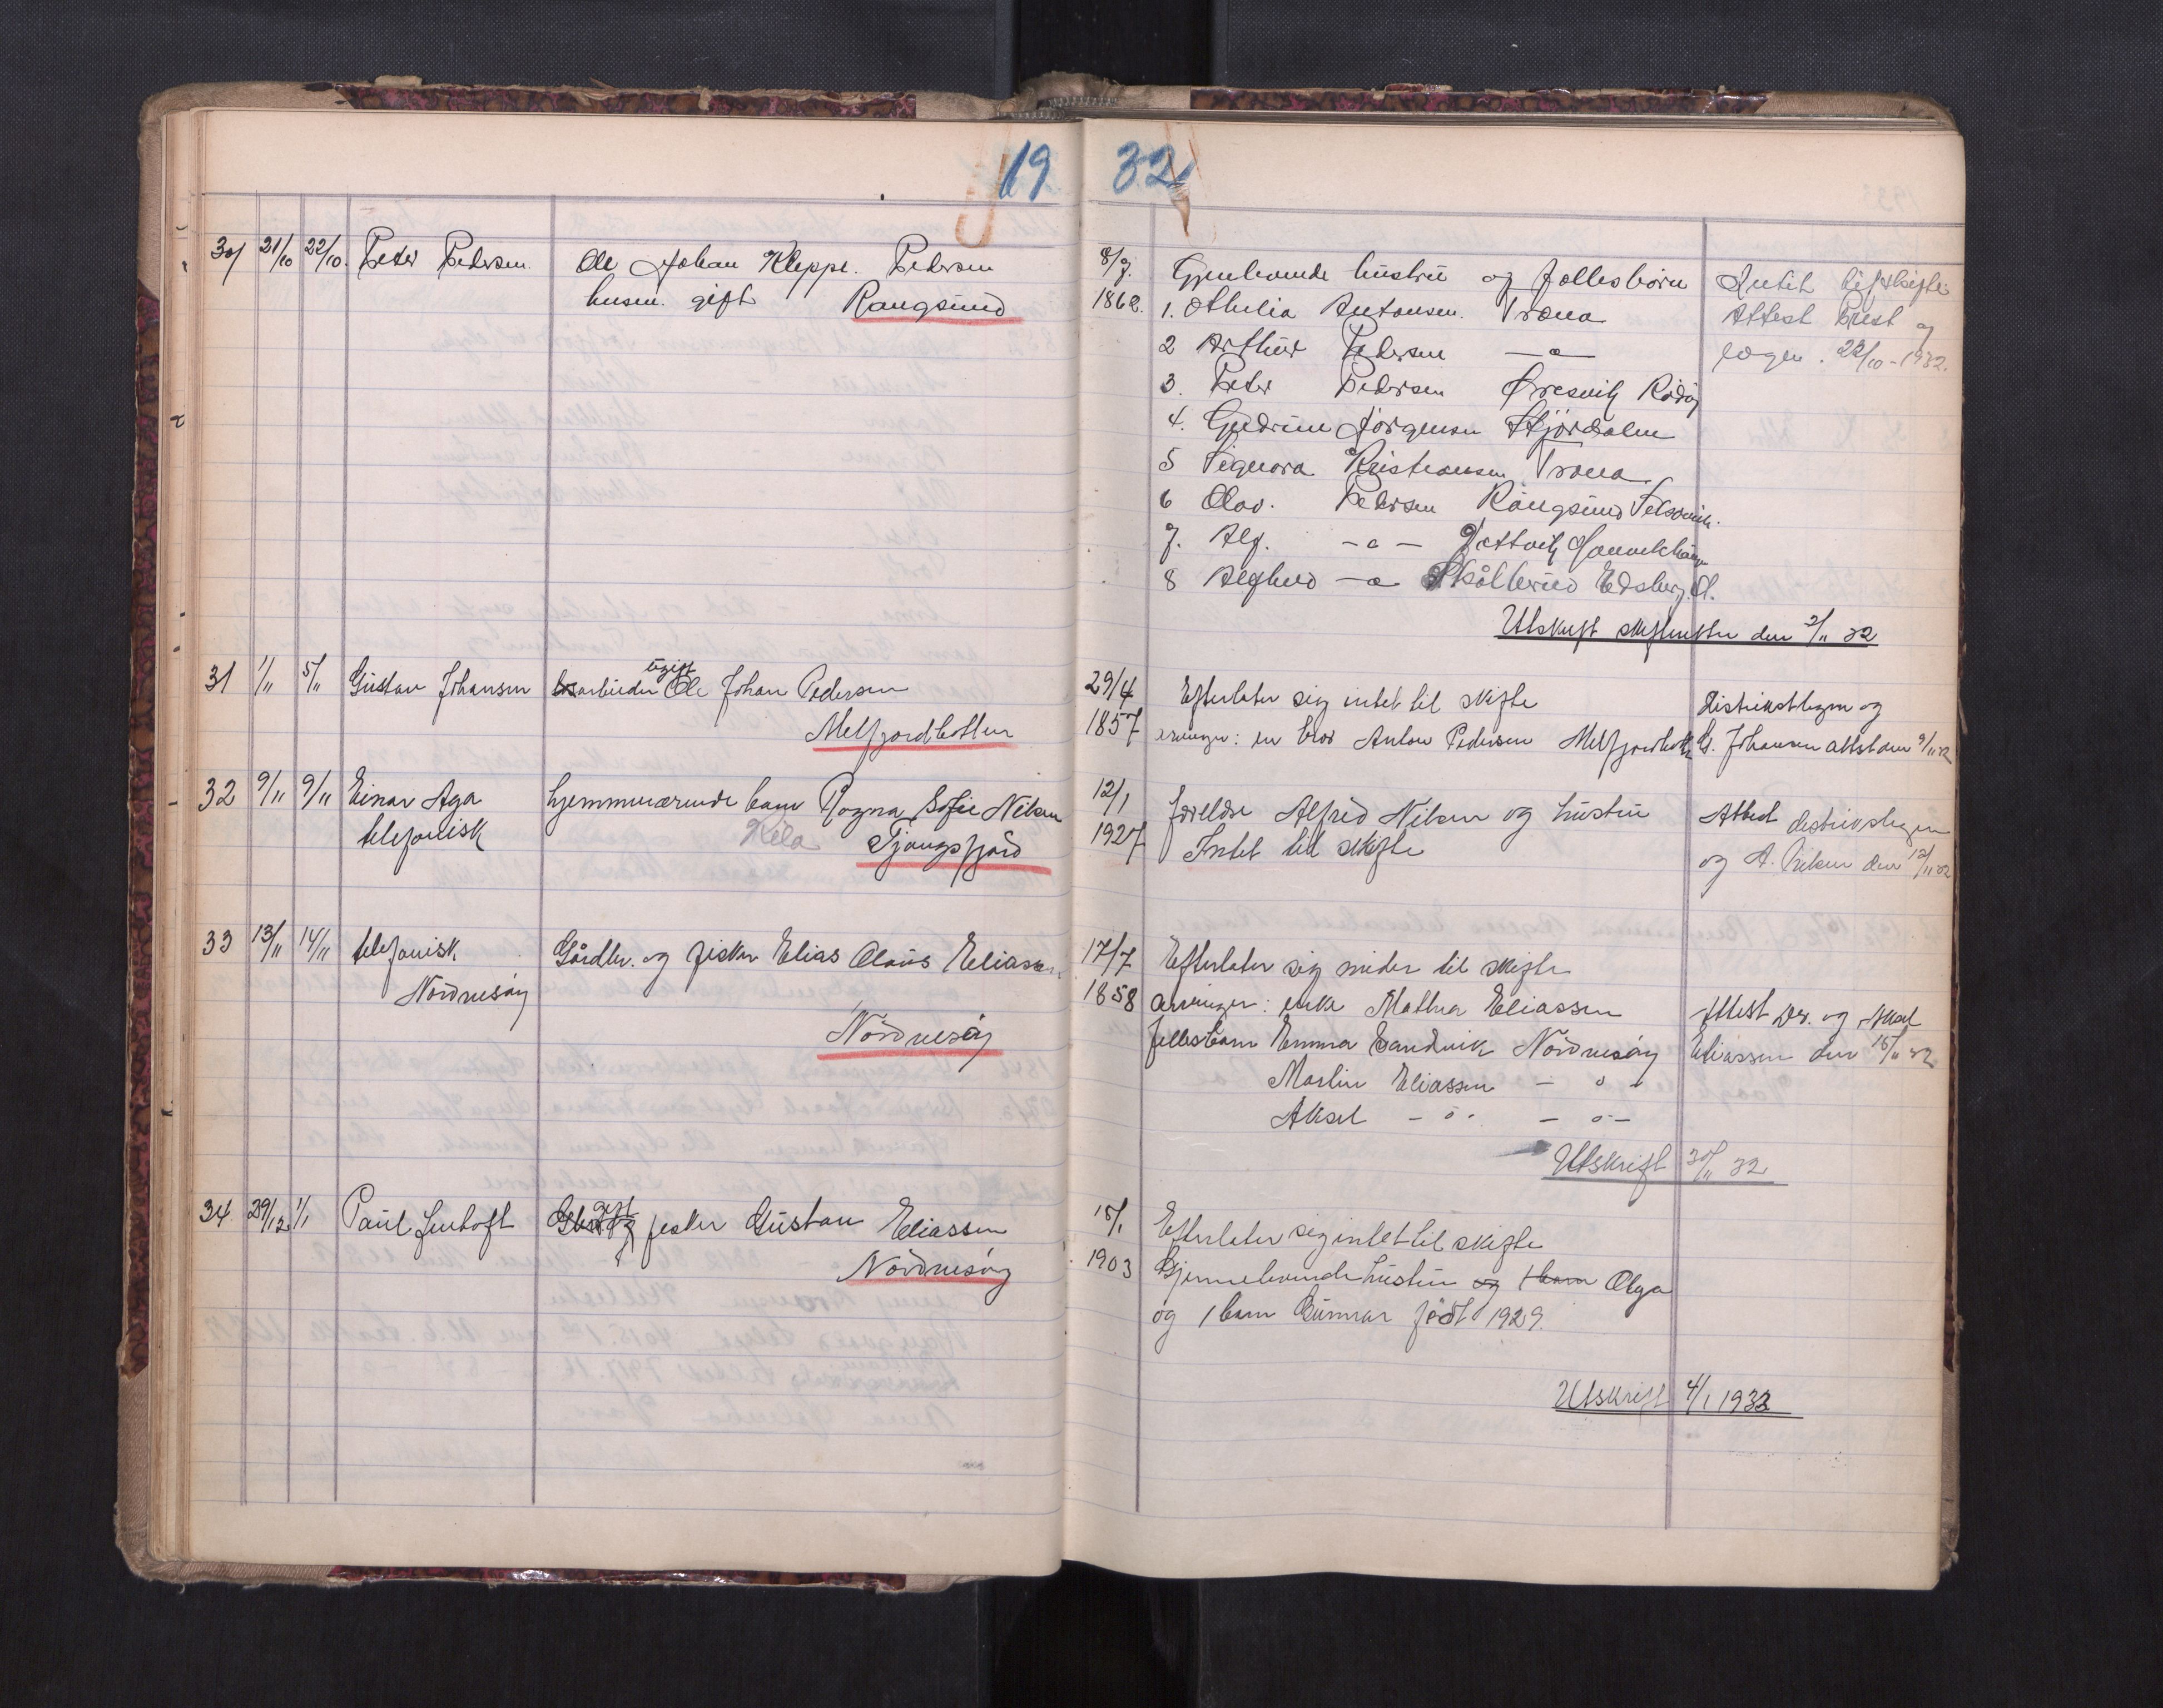 19 32
30 21/10 22/10. Peter Pedersen Ole Johan Kleppe. Pedersen
husm. gift Rangsund
8/7. Gjenlevende hustru og fellesbörn
1862. 1. Othelia Antonsen. Træna
2 Arthur Pedersen —a—
3. Peter Pedersen Öresvik Rödöy
4. Gudrun Jörgensen Stjördalen
5 Signora Kristiansen Træna
6 Olav. Pedersen Rangsund
7. Alf. —a—
8 —a
Utskrift skifteretten den 2/11 32
Attest Prest og
22/10-1932.
31 1/11 5/11 Gustav Johansen ugift Ole Johan Pedersen
Melfjordbotten
29/4 Efterlater sig intet til skifte
1857 arvinger: en bror Anton Pedersen Melfjordbotn
Distriktslegen og
G. Johansen attst den 9/11 32
32 9/11 9/11 Einar Aga hjemmeværende barn Ragna Sofie Nilsen
telefonisk Kila Tjongsfjord
12/1 foreldre Alfred Nilsen og hustru
1927 Intet til skifte
Attest distriktslegen
og A. Nilsen den 12/11 32
33 13/11 14/11 telefonisk. Gårdbr. og fisker Elias Olaus Eliassen
Nordnesöy
Nordnesöy
17/7 Efterlater sig midler til skifte
1858 arvinger: enke Mathea Eliassen
fellesbarn Emma Sandvik Nordnesöy
Martin Eliassen — o -
Aksel — o - — o —
Attest Dr. og Aksel
Eliassen den 15/11 32
Utskrift 30/11 32
34 29/12 1/1 Paul Lenhoft gift fisker Gustav Eliassen
Nordnesöy
15/1 Efterlater sig intet til skifte
1903 Gjennelevende hustru og 1 barn Olga
og 1 barn Gunnar födt 1929.
Utskrift 4/1 1933